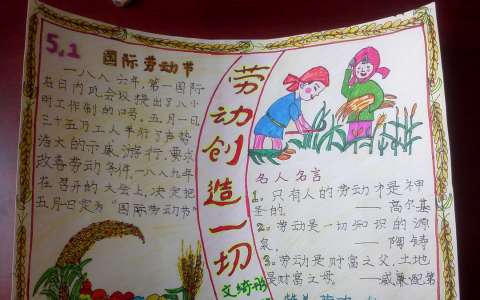 5.1
国际劳动节
一八八六年,第一国际
在日内瓦会议提出了八小
时工作制的口号。五月一日
三十五万工人举行了声势
浩大的示威游行,要求
改善劳动条件。一八八九年
在召开的大会上,决定把
五月一日定为“国际劳动节”
劳动创造一切
名人名言
1。只有人的劳动才是神
圣的。——高尔基
2。劳动是一切知识的源
泉。——陶铸
3。劳动是财富之父,土地
是财富之母。——威廉配第